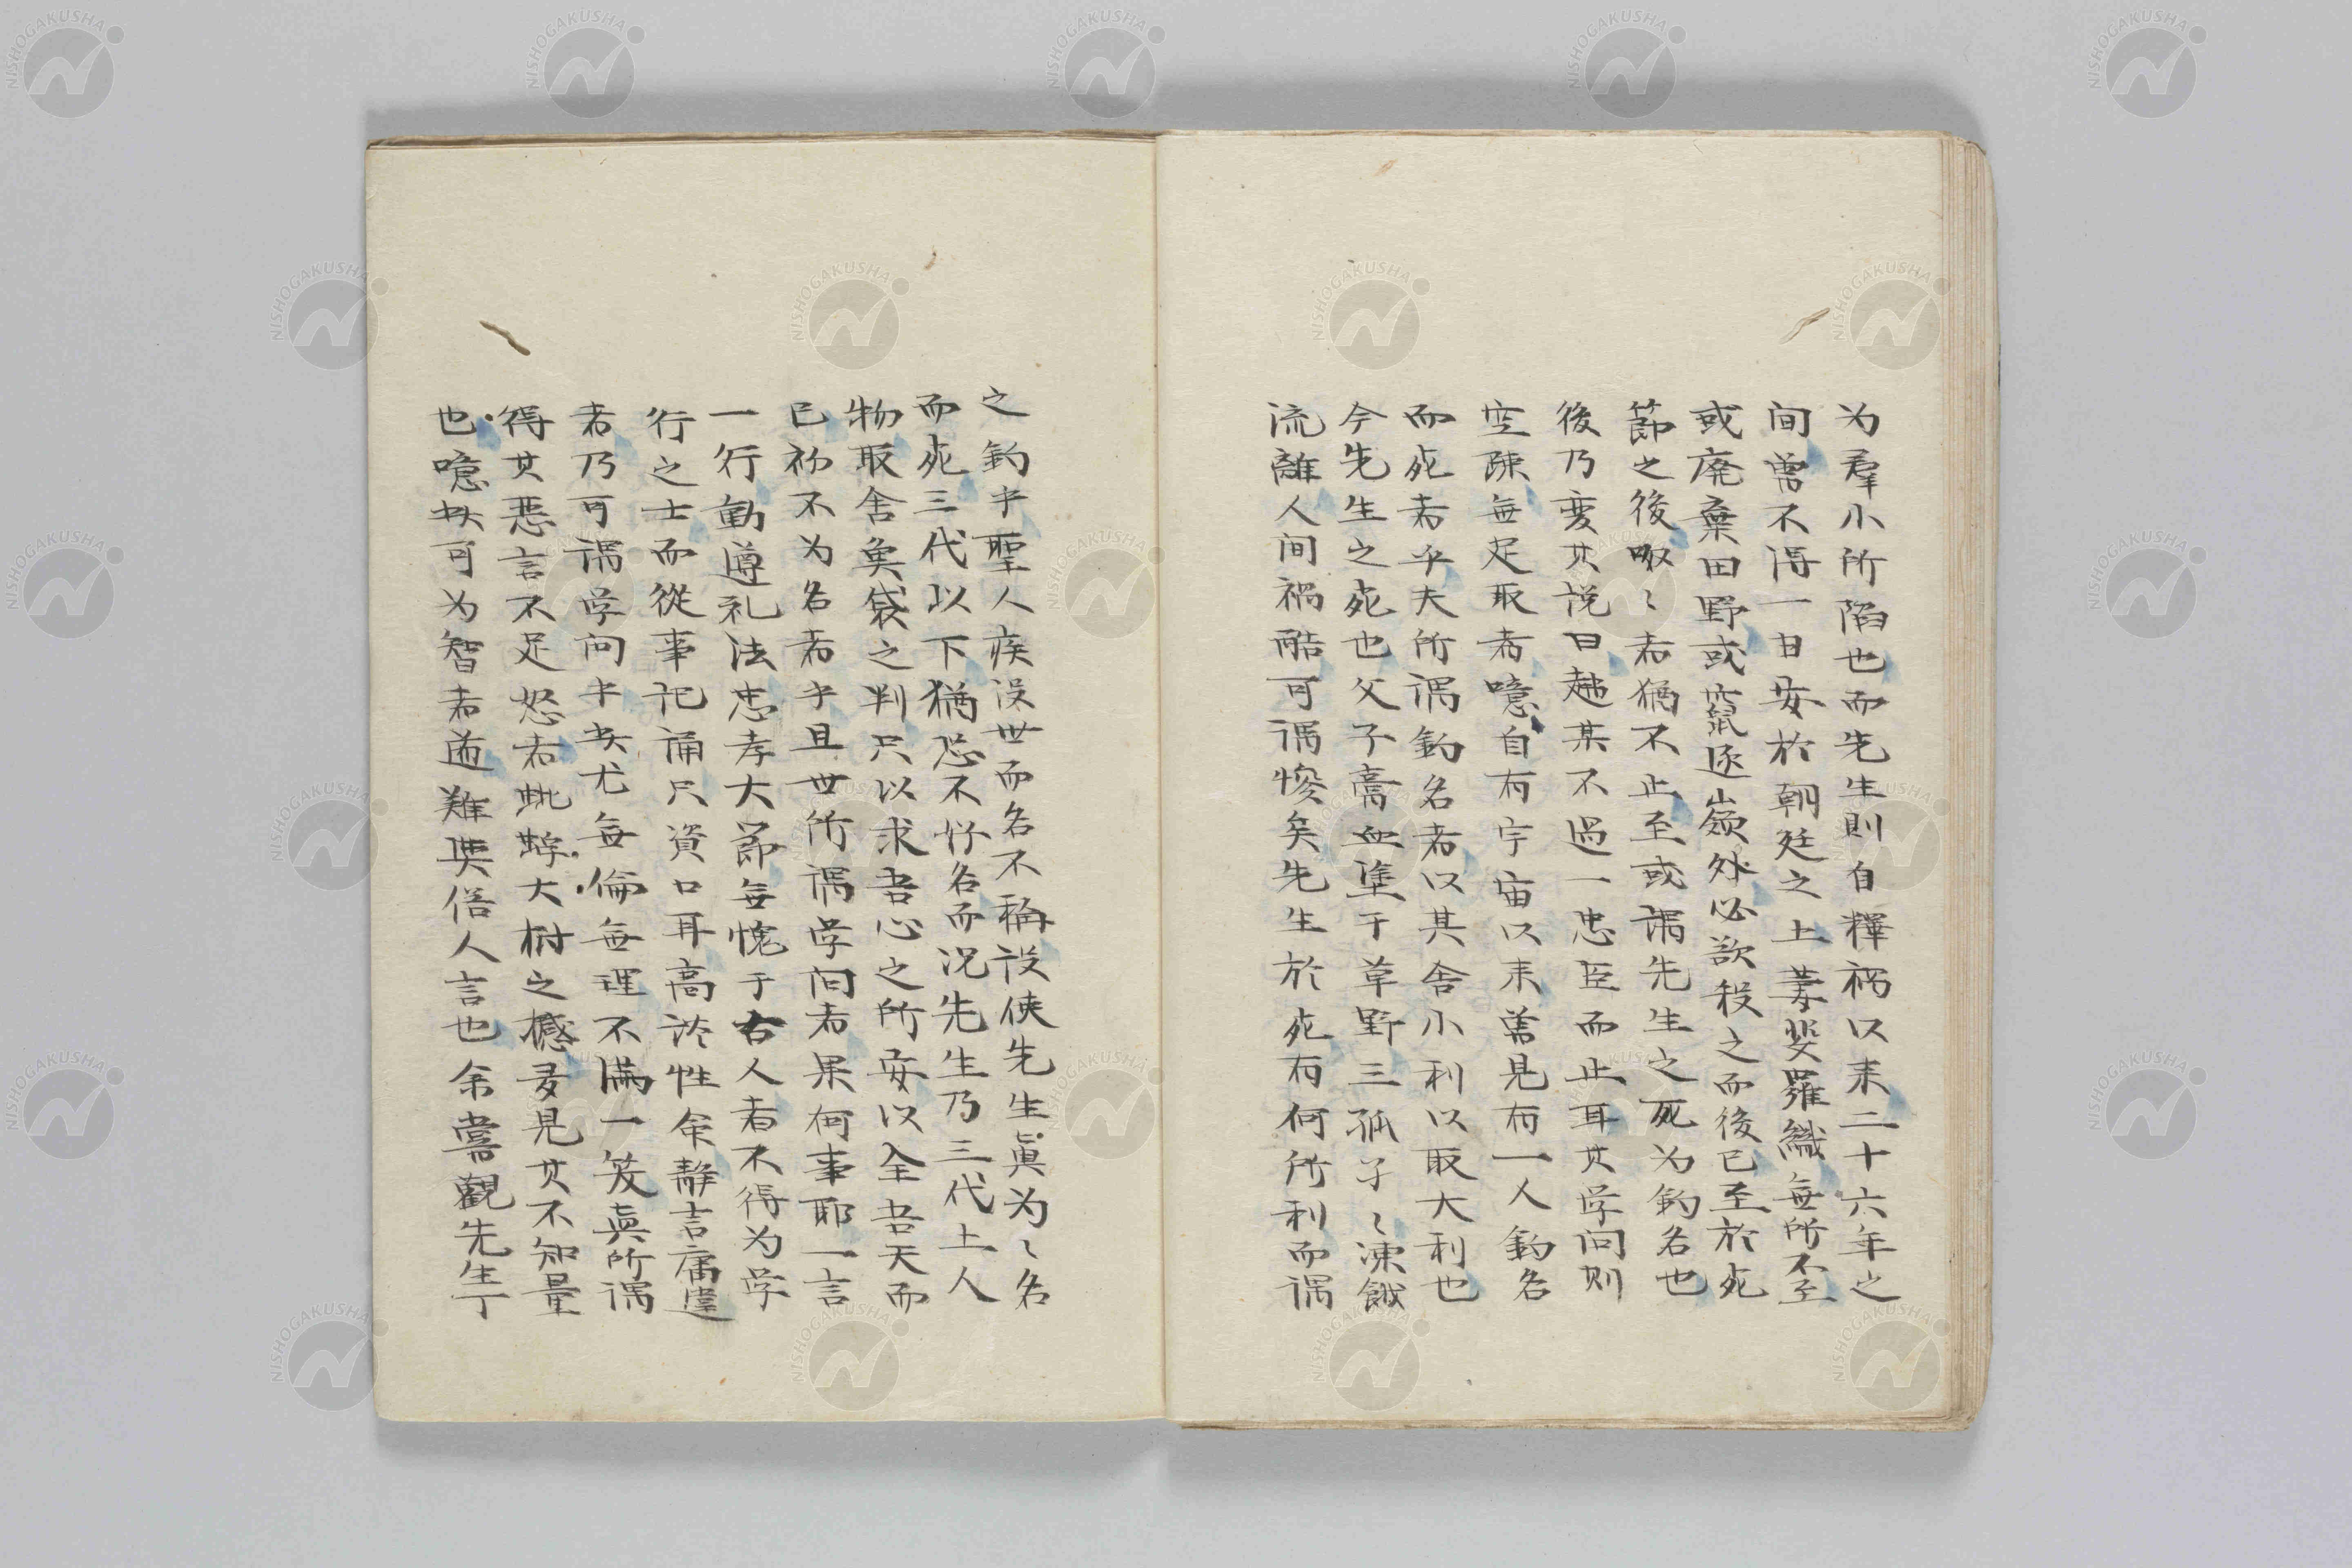 为羣小所陷也而先生則自釋禍以来二十六年之
间曽不得一日安於朝廷之上萋斐羅織無所不至
或廃棄田野或竄逐嶺外必欲殺之而後已至於死
節之後呶〻者猶不止至或謂先生之死为釣名也
後乃变其说曰趙某不過一忠臣而止耳其学问则
空疎無足取者噫自有宇宙以来曽見有一人釣名
而死者乎夫所谓釣名者以其舍小利以取大利也
今先生之死也父子膏血塗于草野三孤孑〻凍餓
流離人间禍酷可谓惨矣先生於死有何所利而谓
之釣乎聖人疾沒世而名不稱設使先生真为〻名
而死三代以下猶恐不好名而况先生乃三代上人
物取舍魚𤋎之判只以求吾心之所安以全吾天而
已初不为名者乎且世所谓学问者果何事耶一言
一行動遵礼法忠孝大節無愧于古人者不得为学
行之士而從事记诵只資口耳高談性命静言庸違
者乃可谓学问乎失尤無倫無理不滿一笑真所谓
得其惡言不足怒者蚍蜉大樹之撼多見其不知量
也噫此可为智者道難與俗人言也余嘗觀先生丁